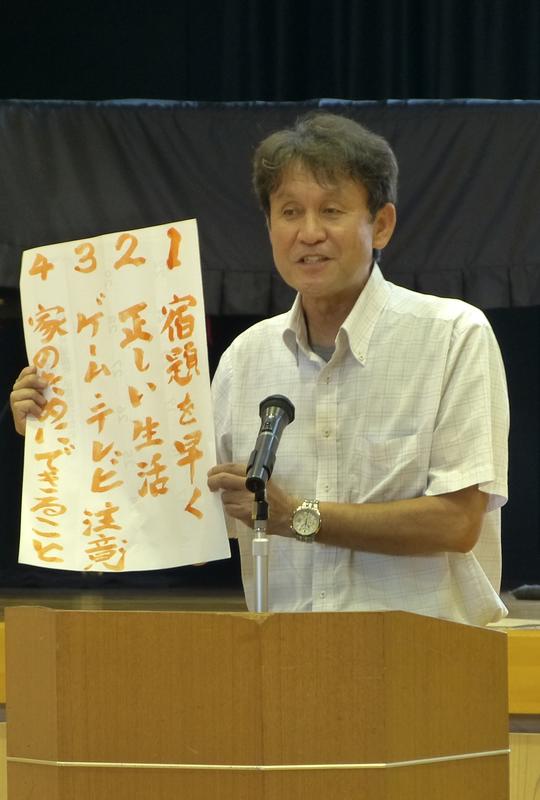 1 宿題を早く
2 正しい生活
3 ゲームテレビ注意
4 家のためにできること